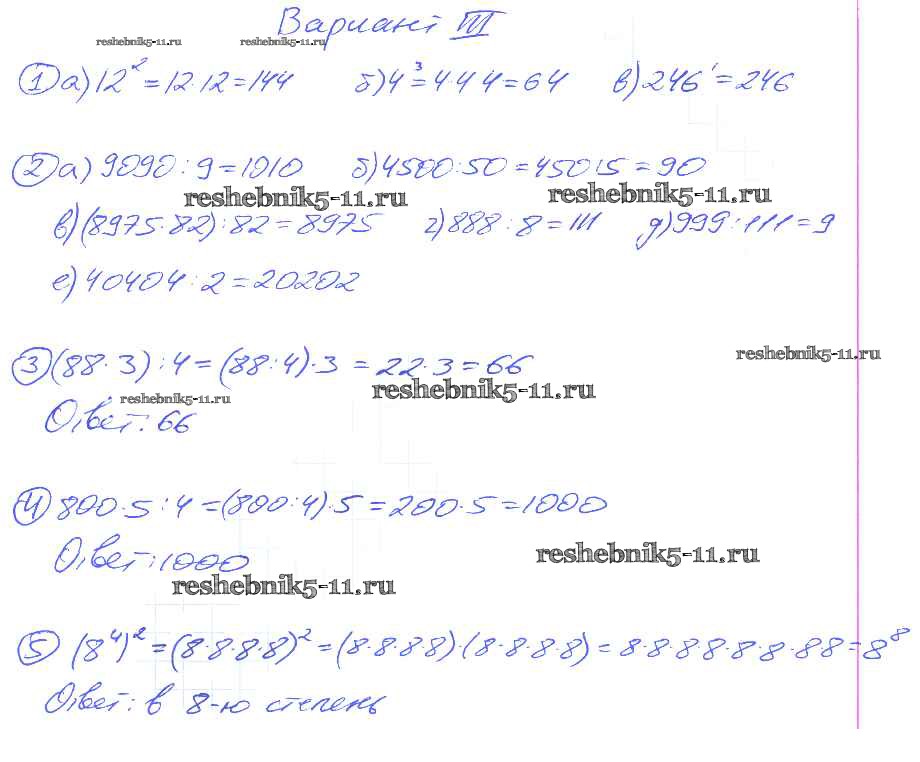 Вариант III
reshebnik5-11.ru reshebnik5-11.ru
① а) 12² = 12·12 = 144 б) 4³ = 4·4·4 = 64 в) 246¹ = 246
② а) 9090 : 9 = 1010 б) 4500 : 50 = 450 : 5 = 90
reshebnik5-11.ru reshebnik5-11.ru
в) (8975·82) : 82 = 8975 г) 888 : 8 = 111 д) 999 : 111 = 9
е) 40404 : 2 = 20202
③ (88·3) : 4 = (88 : 4)·3 = 22·3 = 66
reshebnik5-11.ru
reshebnik5-11.ru reshebnik5-11.ru
Ответ: 66
④ 800·5 : 4 = (800 : 4)·5 = 200·5 = 1000
Ответ: 1000
reshebnik5-11.ru
reshebnik5-11.ru
⑤ (8⁴)² = (8·8·8·8)² = (8·8·8·8)·(8·8·8·8) = 8·8·8·8·8·8·8·8 = 8⁸
Ответ: в 8-ю степень